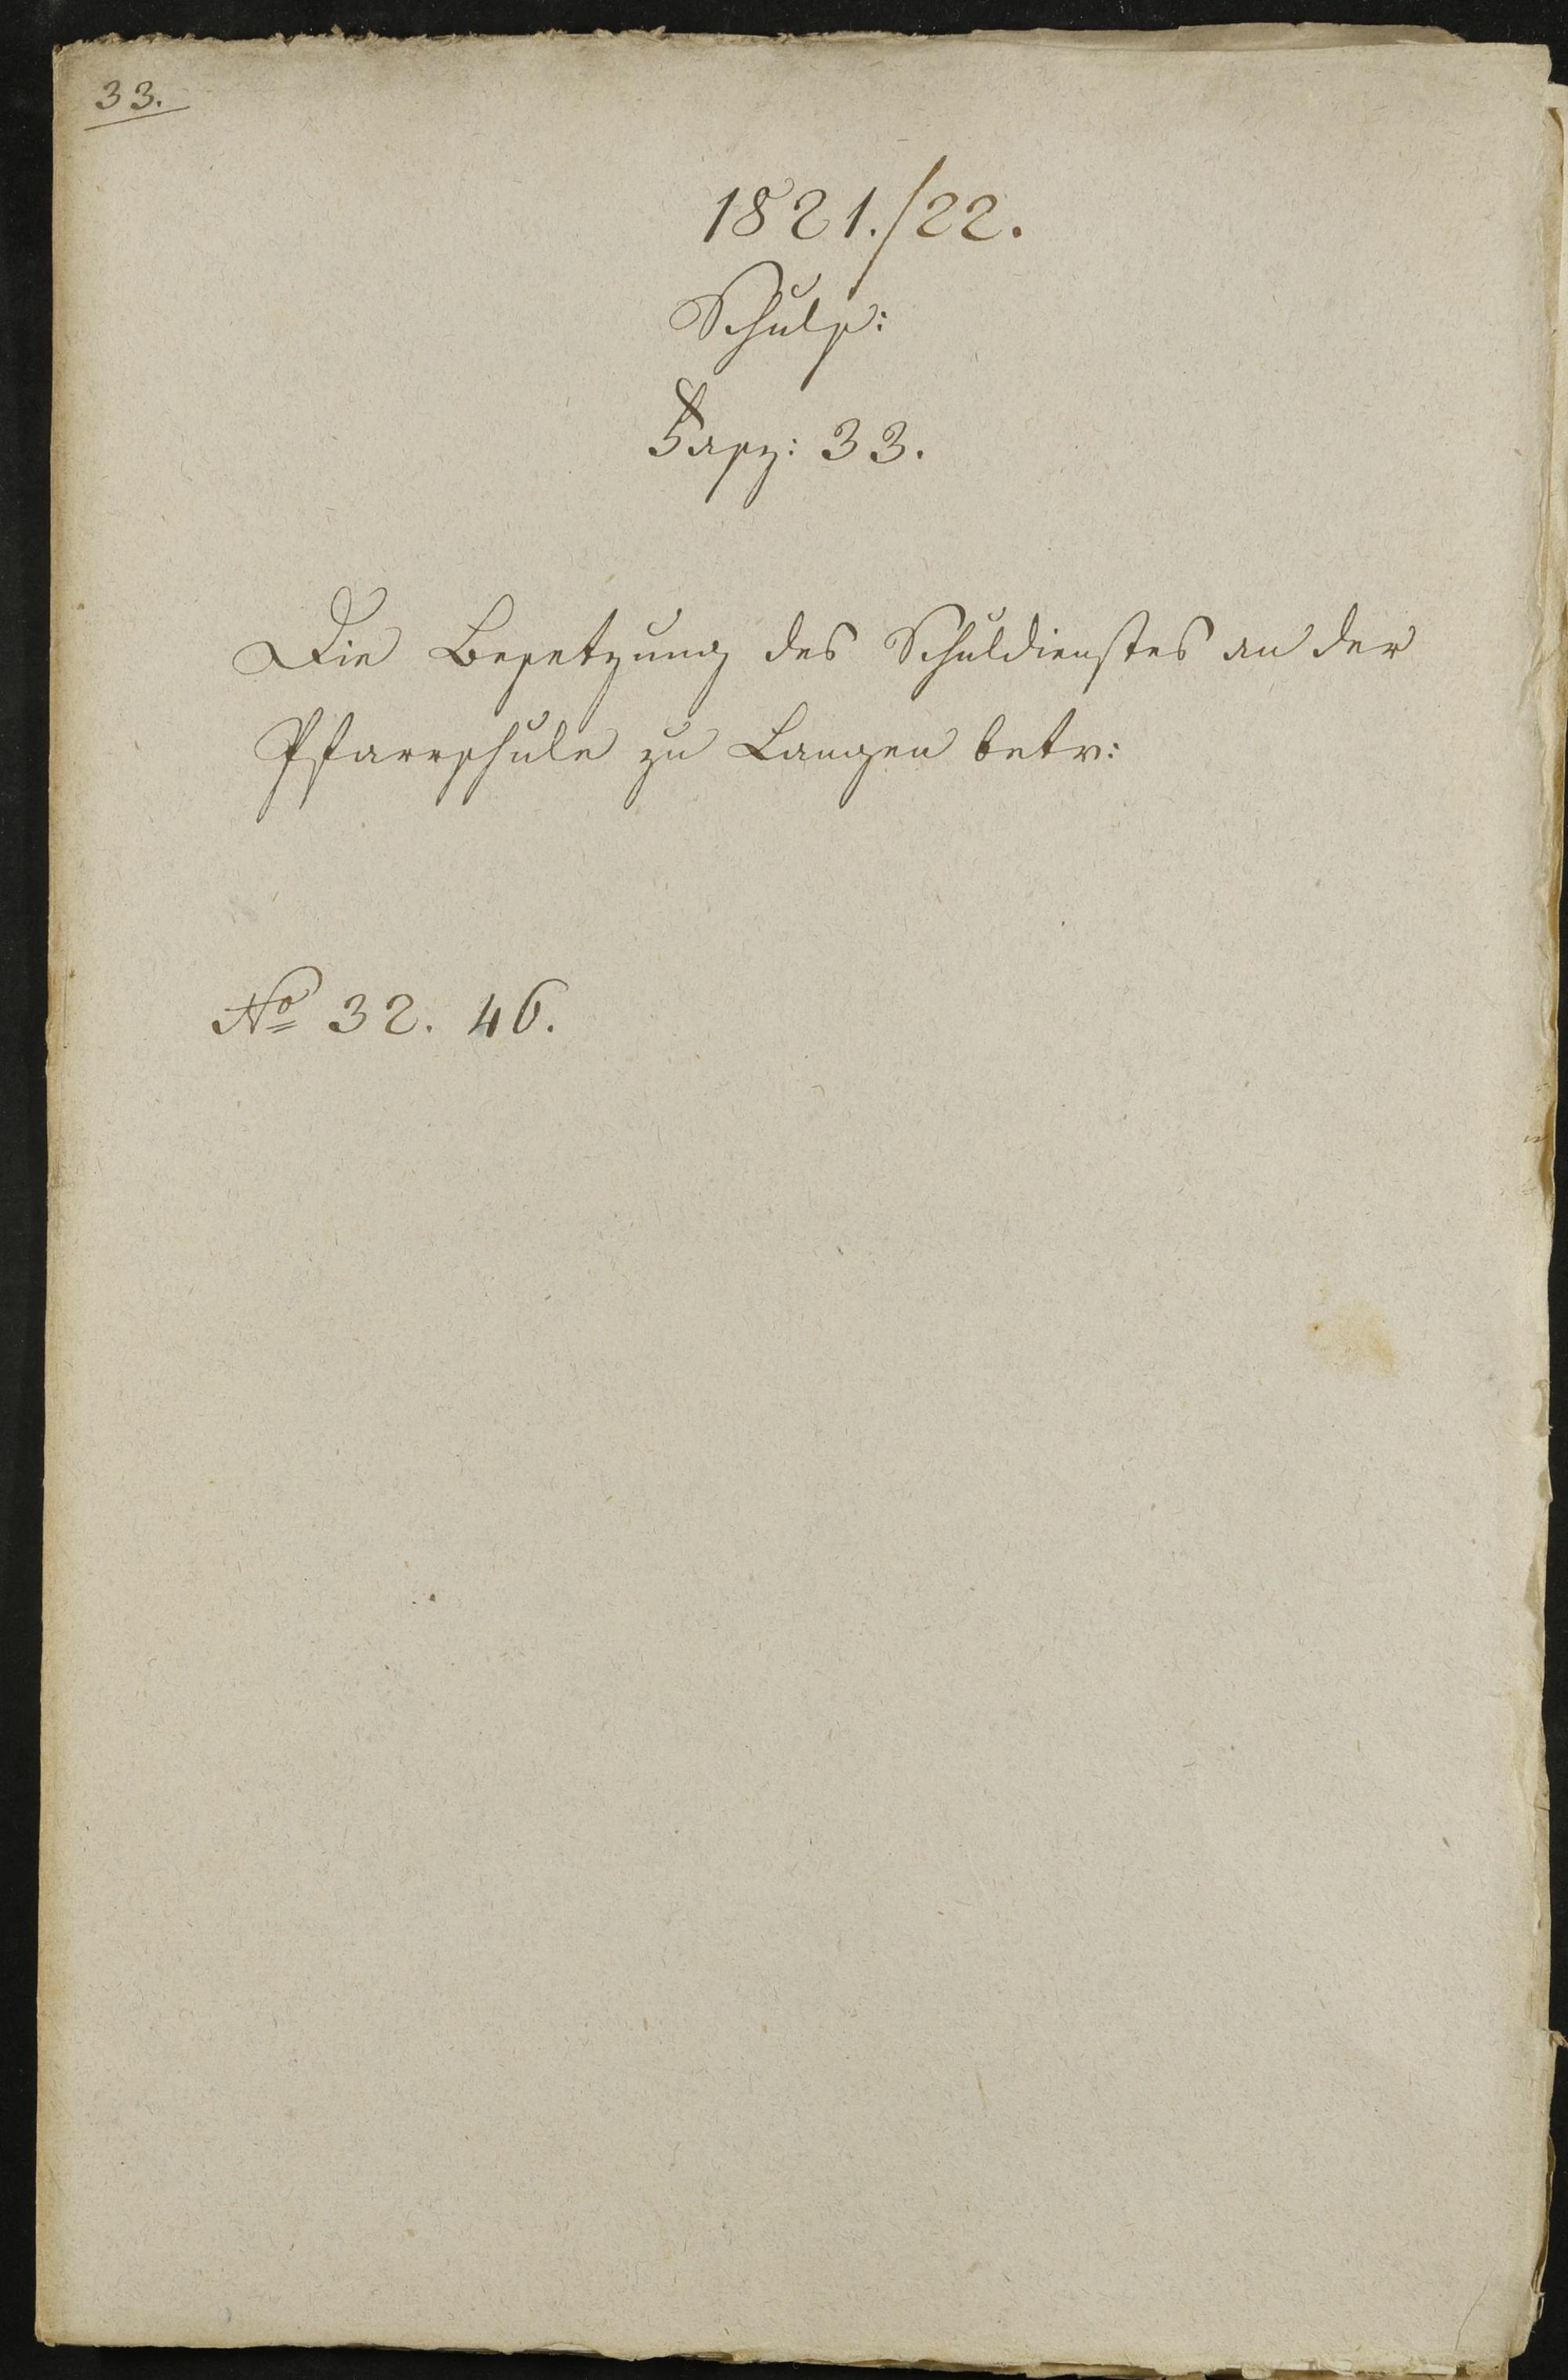 33.
1821./22.
Schuls:
Fasz: 33.
Die Besetzung des Schuldienstes an der
Pfarrschule zu Langen betr:
No 32. 46.